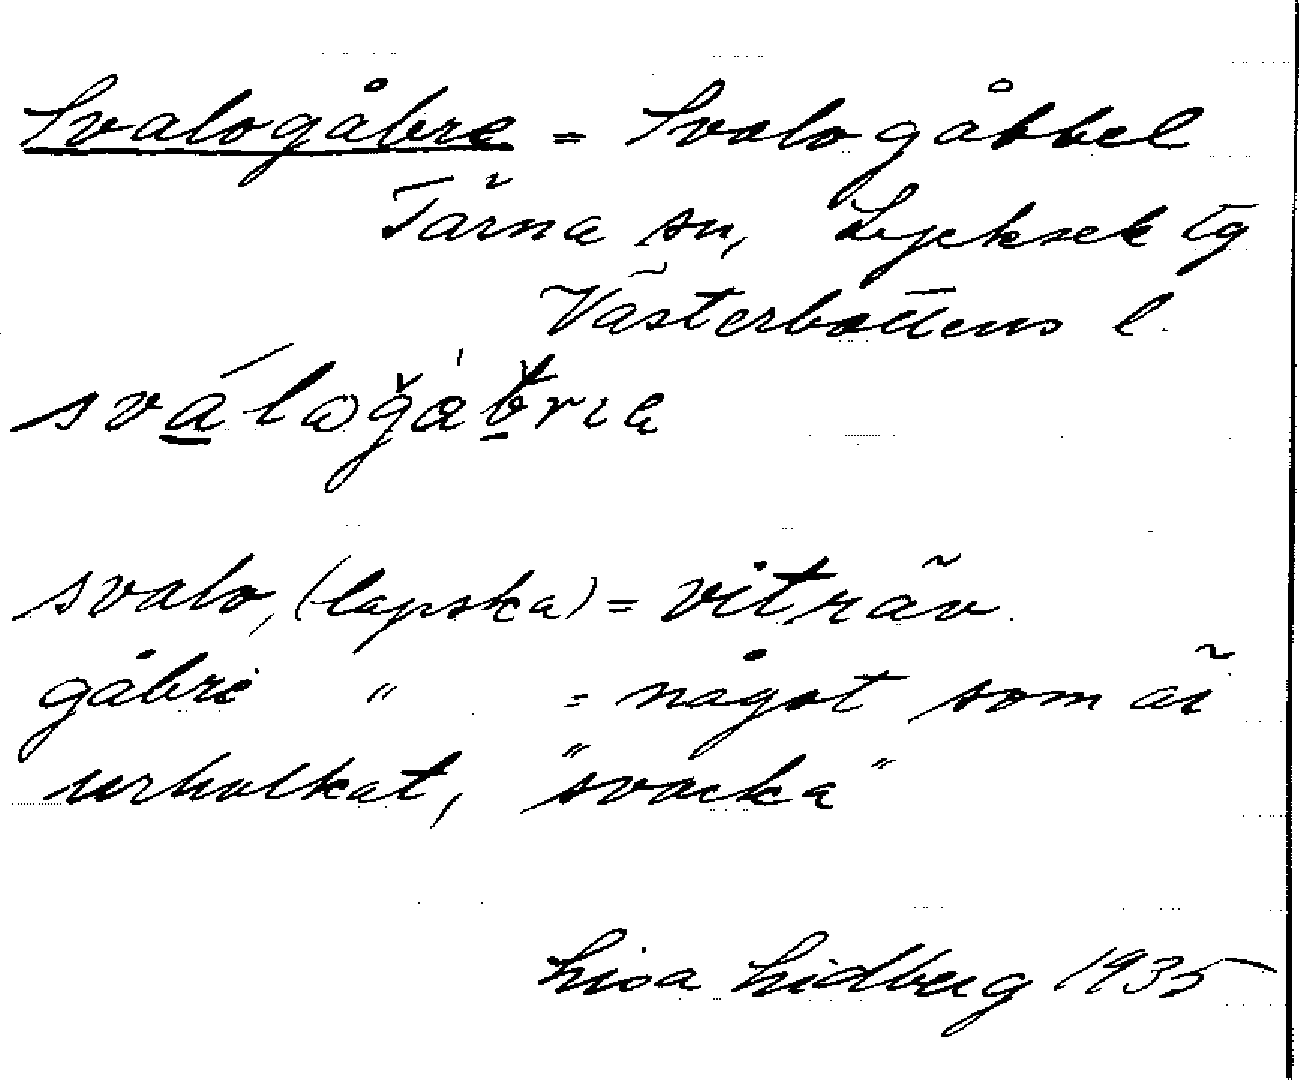 Svalogåbre = Svalogåbbel
Tärna sn, Lycksele tg
Västerbottens l.
svalo, (lapska) = viträv.
gåbre " = något som är
urholkat, "svacka"
Lisa Lidberg 1935